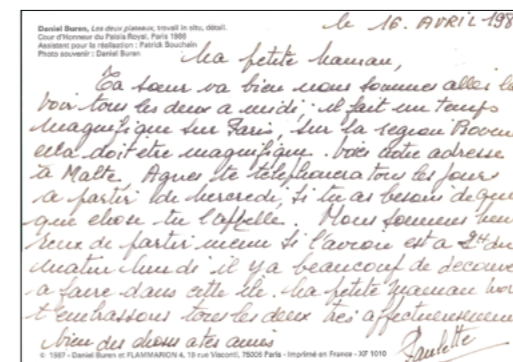 Daniel Buren, Les deux plateaux, travail in situ, détail.
Cour d'Honneur du Palais Royal, Paris 1986
Assistant pour la réalisation : Patrick Bouchain
Photo souvenir : Daniel Buren
le 16. AVRIL 198
Ma petite maman,
Ta sœur va bien nous sommes allés la
voir tous les deux a midi, il fait un temps
magnifique sur Paris, sur la region
cela doit etre magnifique. voici notre adresse
a Malte. Agnes te telephonera tous les jours
a partir de mercredi, si tu as besoin de quel
que chose tu l'appelle. Nous sommes heu
reux de partir meme si l'avion est a 2H du
matin lundi il y a beaucoup de decouve
a faire dans cette île. Ma petite maman nous
t'embrassons tous les deux très affectueusement
bien des choses a tes amies
Paulette
© 1987 - Daniel Buren et FLAMMARION 4, 19 rue Visconti, 75006 Paris - Imprimé en France - XF 1010